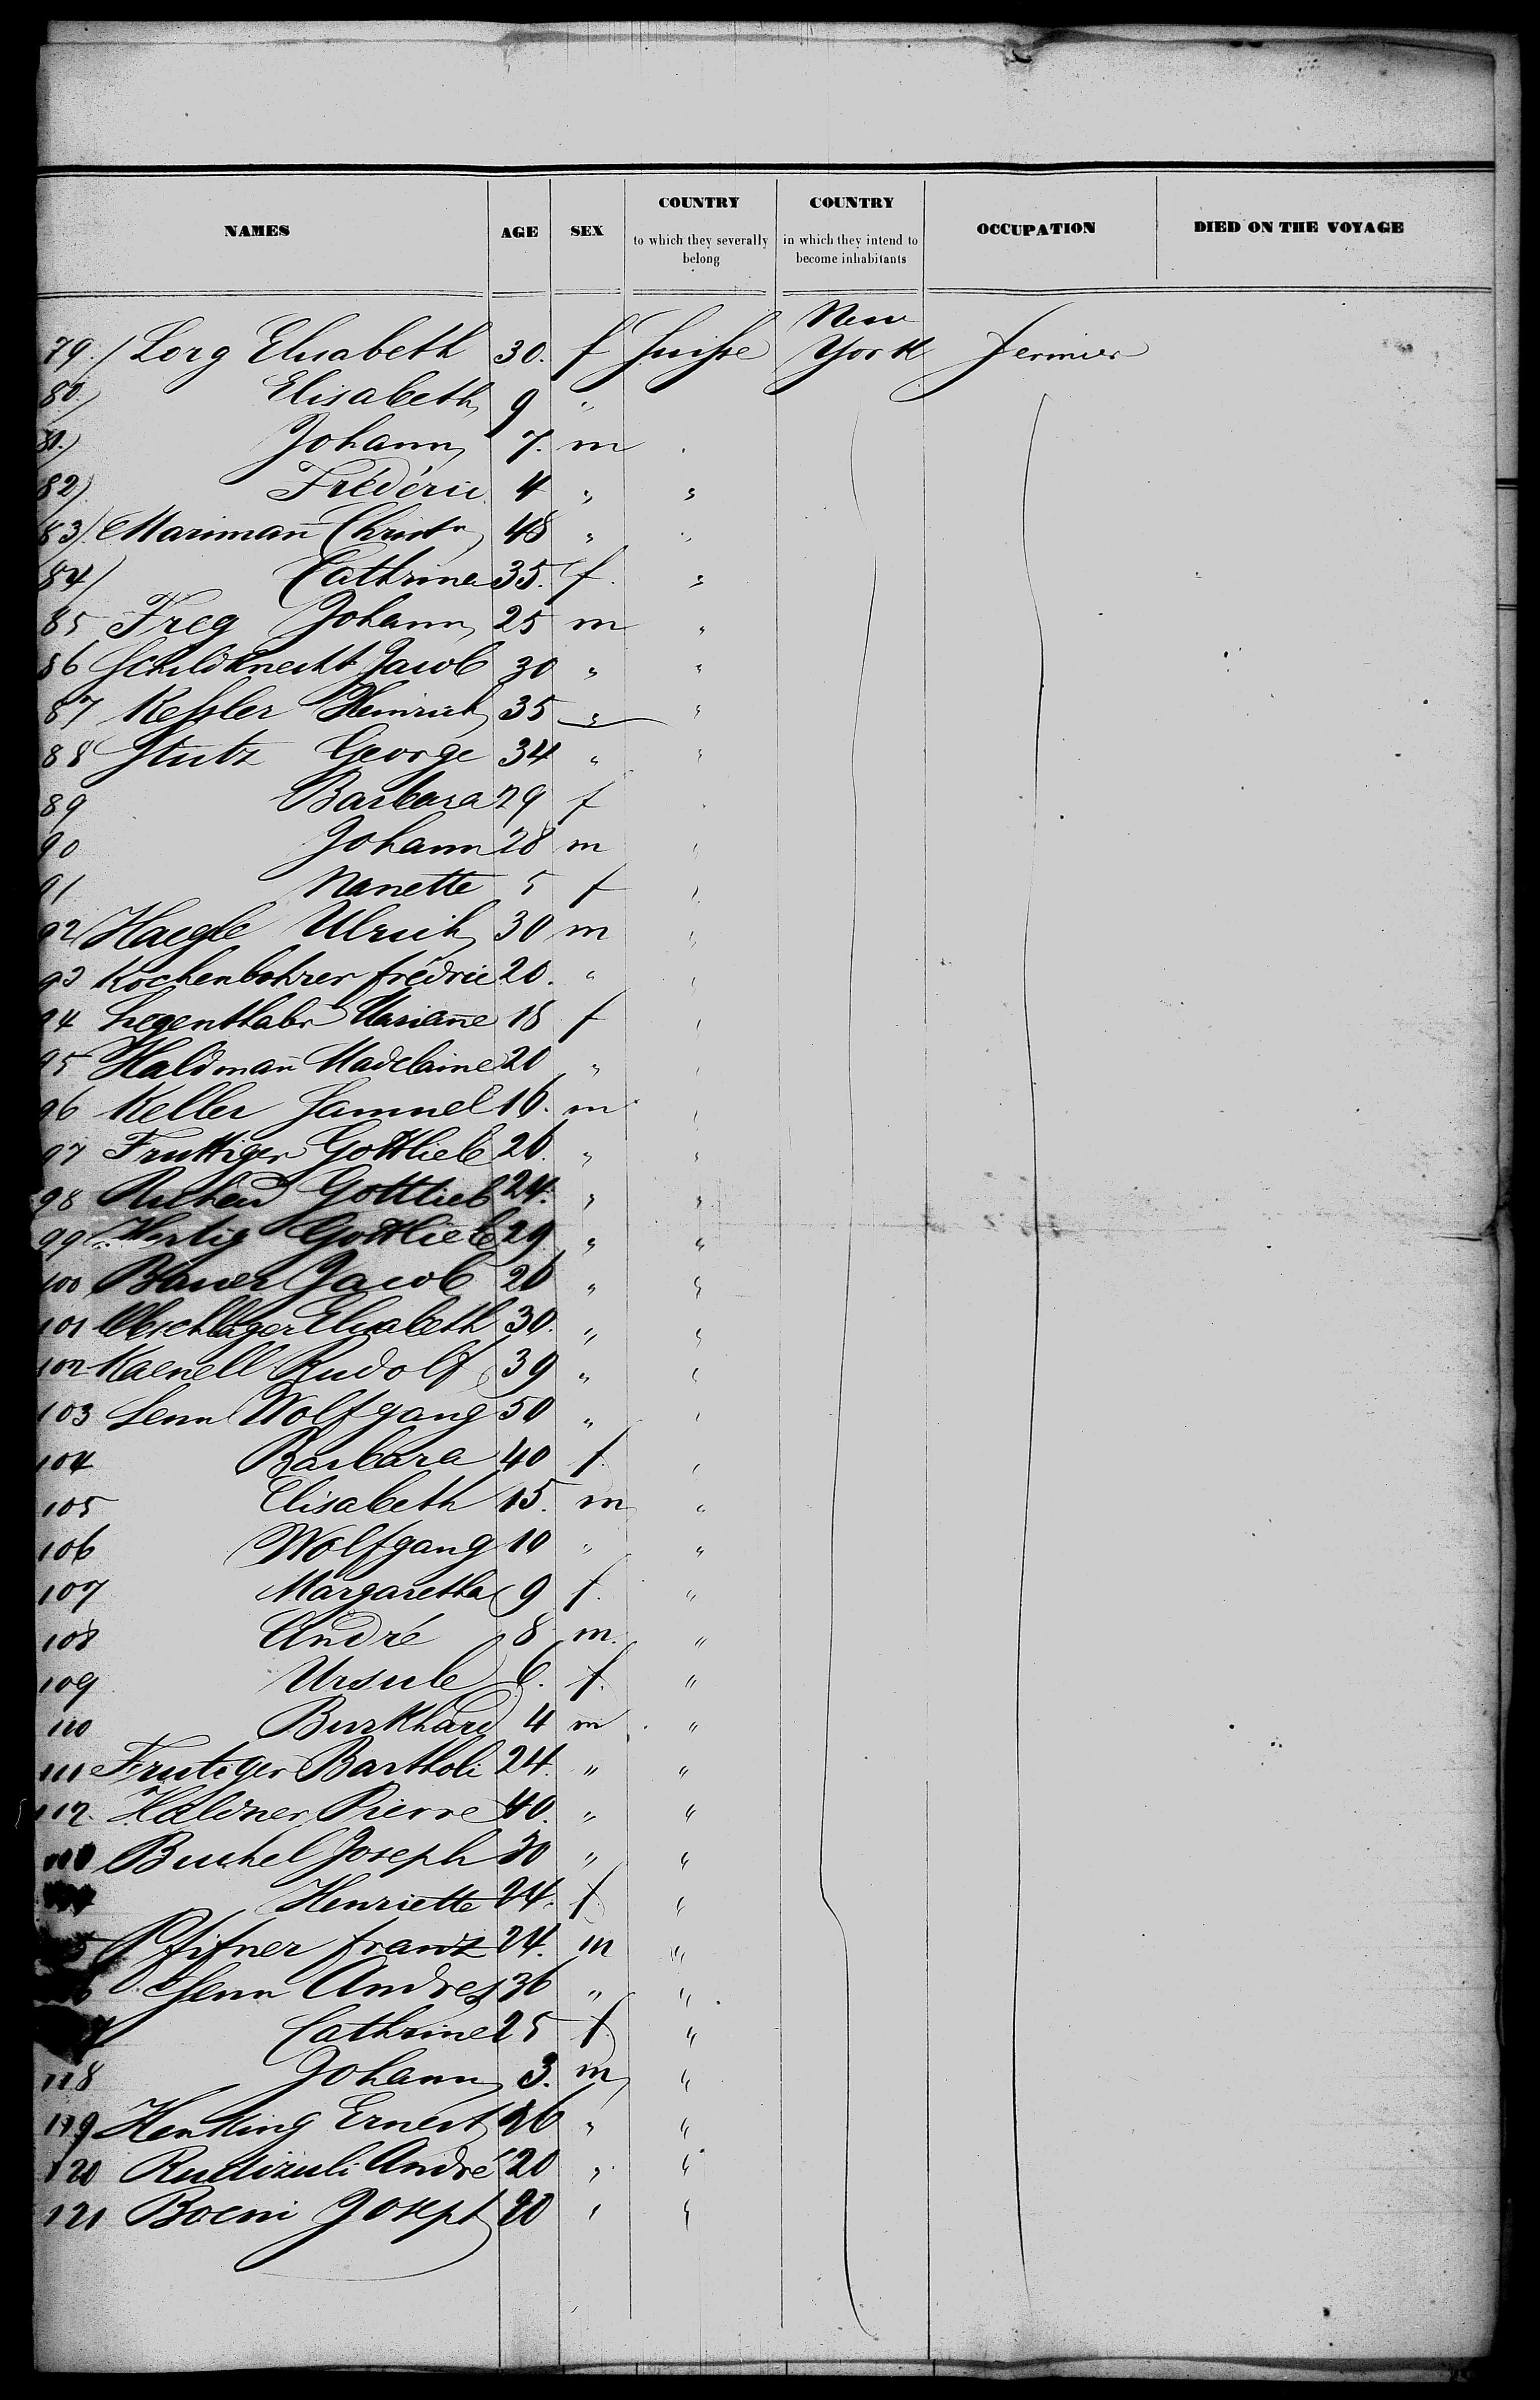 NAMES AGE SEX COUNTRY to which they severally belong COUNTRY in which they intend to become inhabitants OCCUPATION DIED ON THE VOYAGE
79. / Lorg Elisabeth 30. f Suisse New York fermier
80. / Elisabeth 9 "
81. ) Johann 7. m
82 ) Frédéric 4 " "
83 ) Marimañ Christn 48 " "
84 / Cathrina 35. f. "
85 Freg Johann 25 m "
86 Schildknecht Jacob 30 " "
87 Kessler Heinrich 35 " "
88 Stutz George 34 " "
89 Barbara 29 f
90 Johann 28 m "
91 Nanette 5 f "
92 Haegle Ulrich 30 m "
93 Kochenbohrer frédric 20. " "
94 Legenthaler Mariañe 18 f "
95 Haldmañ Madelaine 20 " "
96 Keller Samuel 16. m "
97 Fruttiger Gottlieb 26. " "
98 Gottlieb 24. " "
99 Hertig Gottlieb 29 " "
100 Bauer Jacob 26 " "
101 Elisabeth 30. " "
102 Kaenell Rudolf 39 " "
103 Senn Wolfgang 50 " "
104 Barbara 40 f "
105 Elisabeth 15. m "
106 Wolfgang 10 " "
107 Margaretha 9 f. "
108 André 8 m. "
109 Ursule 6. f. "
110 Burkhard 4 m "
111 Frutiger Bartholi 24. " "
112. Haldner Pierre 40. " "
Buchel Joseph 30 " "
Henriette 24. f "
5 Pfifner franz 24. m "
6 Senn Andres 36 " "
7 Cathrine 25 f "
118 Johann 3. m "
119 Henking Ernest 26 " "
120 André 20 " "
121 Boeni Josept 20 " "